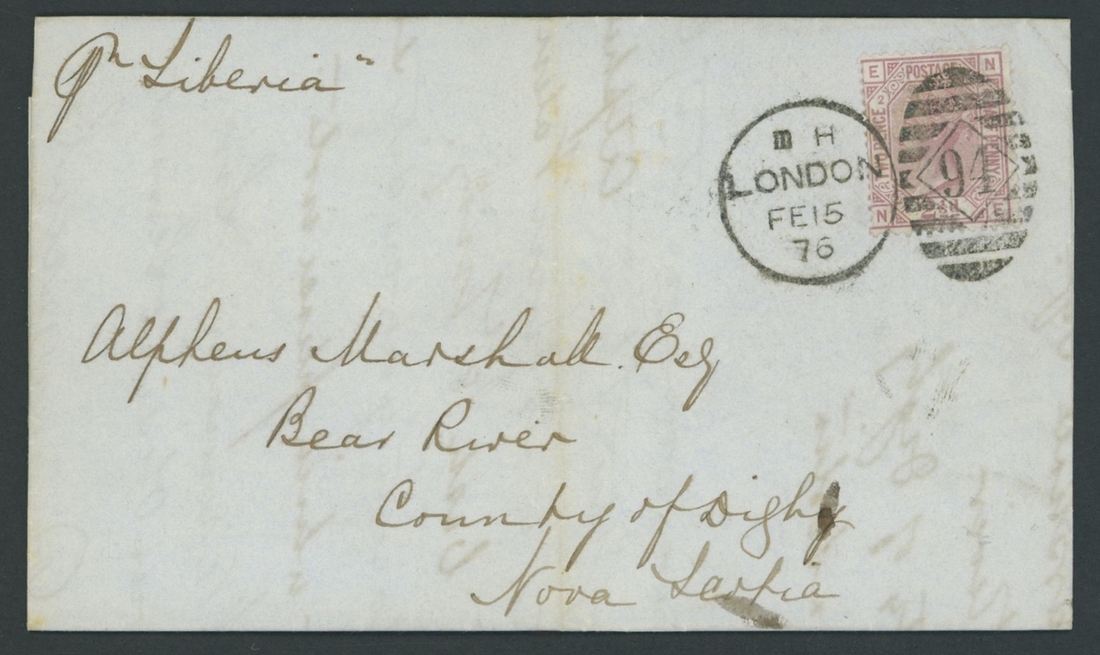 pr "Liberia"
E POSTAGE N
2
N E
m H
LONDON
FE 15
76
94
Alpheus Marshall. Esq
Bear River
County of Digby
Nova Scotia